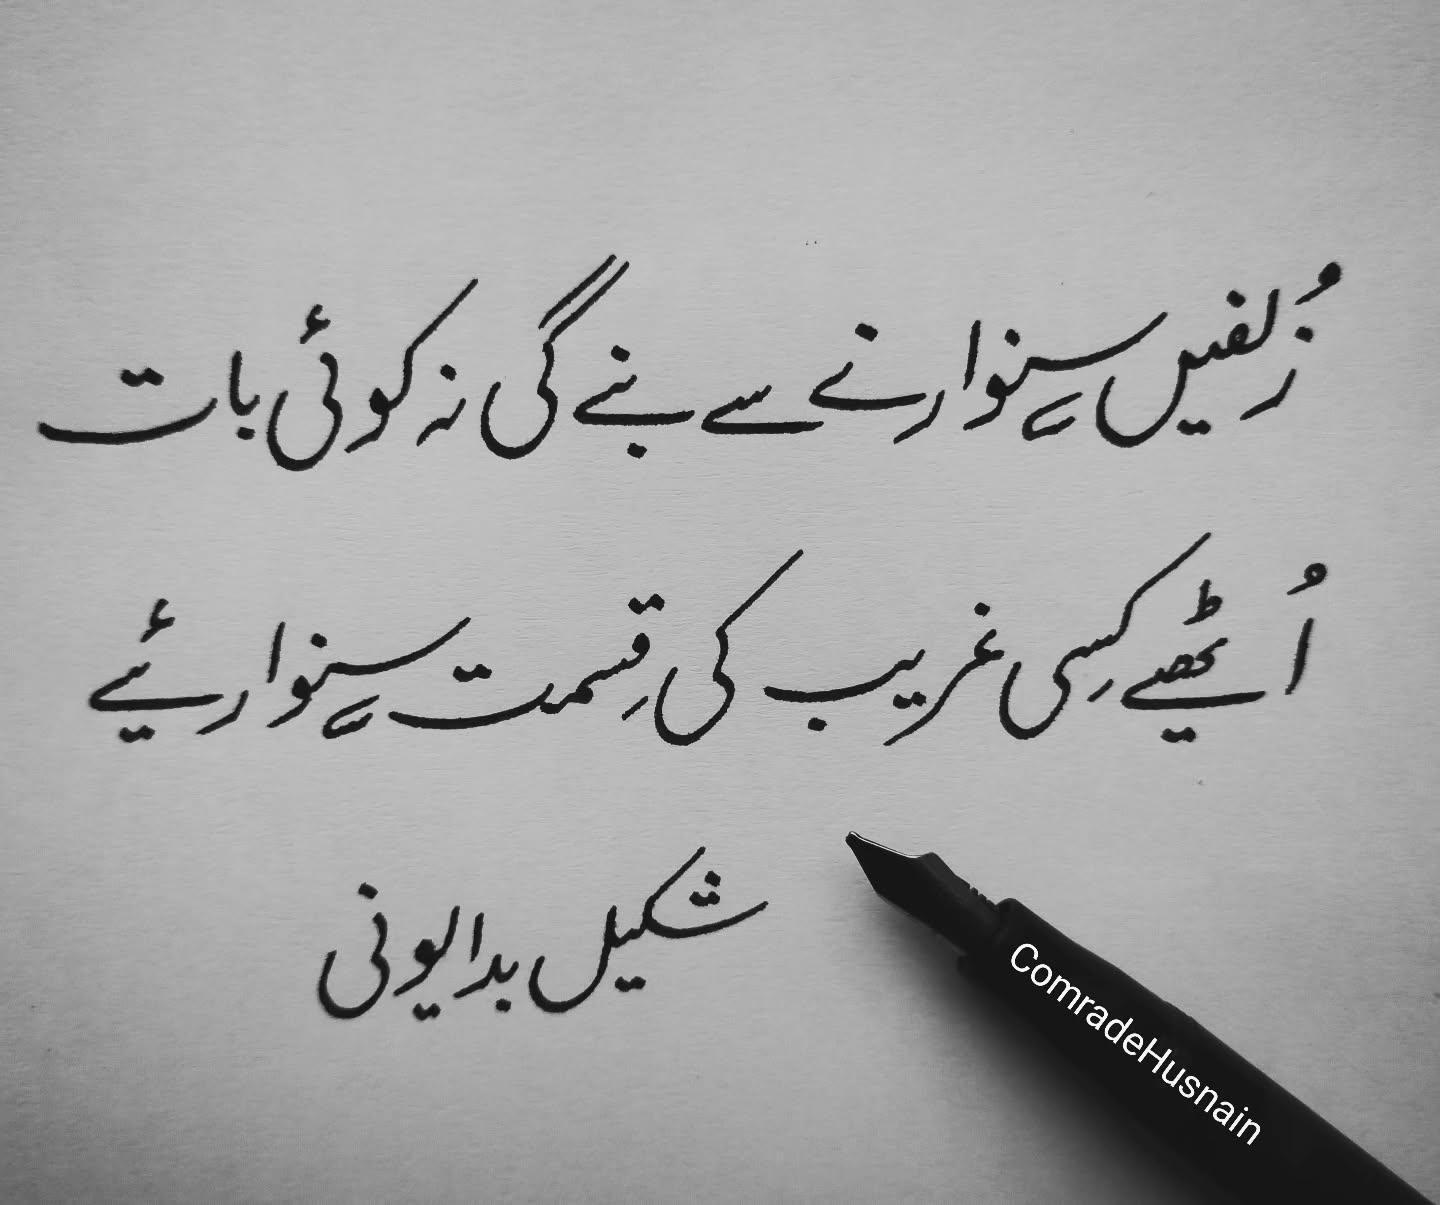 زُلفیں سنوارنے سے بنے گی نہ کوئی بات
اُٹھیے کِسی غریب کی قِسمت سنوارئیے
شکیل بدایونی
ComradeHusnain